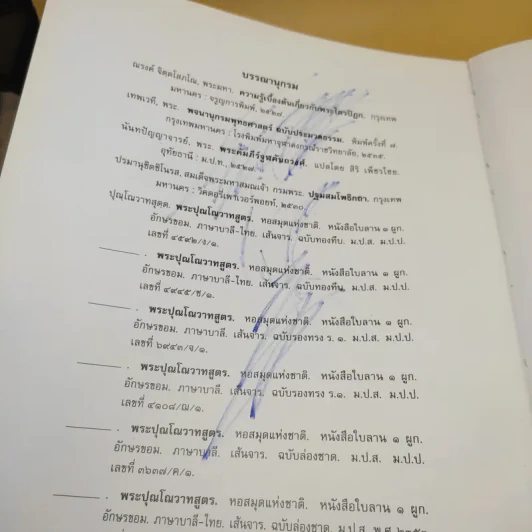 บรรณานุกรม
ณรงค์ จิตฺตโสภโณ, พระมหา. ความรู้เบื้องต้นเกี่ยวกับพระไตรปิฎก. กรุงเทพ
มหานคร : จรูญการพิมพ์, ๒๕๒๗.
เทพเวที, พระ. พจนานุกรมพุทธศาสตร์ ฉบับประมวลธรรม. พิมพ์ครั้งที่ ๗.
กรุงเทพมหานคร : โรงพิมพ์มหาจุฬาลงกรณ์ราชวิทยาลัย, ๒๕๓๕.
นันทปัญญาจารย์, พระ. พระคัมภีร์จูฬคันถวงศ์. แปลโดย สิริ เพ็ชรไชย.
อุทัยธานี : ม.ป.ท., ๒๕๒๗.
ปรมานุชิตชิโนรส, สมเด็จพระมหาสมณเจ้า กรมพระ. ปฐมสมโพธิกถา. กรุงเทพ
มหานคร : วิคตอรี่เพาเวอร์พอยท์, ๒๕๓๐.
ปุณฺโณวาทสูตฺต. พระปุณโณวาทสูตร. หอสมุดแห่งชาติ. หนังสือใบลาน ๑ ผูก.
อักษรขอม. ภาษาบาลี-ไทย. เส้นจาร. ฉบับทองทึบ. ม.ป.ส. ม.ป.ป.
เลขที่ ๔๕๙๒/ง/๑.
_____. พระปุณโณวาทสูตร. หอสมุดแห่งชาติ. หนังสือใบลาน ๑ ผูก.
อักษรขอม. ภาษาบาลี-ไทย. เส้นจาร. ฉบับทองทึบ. ม.ป.ส. ม.ป.ป.
เลขที่ ๔๙๔๕/ช/๑.
_____. พระปุณโณวาทสูตร. หอสมุดแห่งชาติ. หนังสือใบลาน ๑ ผูก.
อักษรขอม. ภาษาบาลี. เส้นจาร. ฉบับรองทรง ร. ๑. ม.ป.ส. ม.ป.ป.
เลขที่ ๖๙๕๓/จ/๑.
_____. พระปุณโณวาทสูตร. หอสมุดแห่งชาติ. หนังสือใบลาน ๑ ผูก.
อักษรขอม. ภาษาบาลี. เส้นจาร. ฉบับรองทรง ร.๑. ม.ป.ส. ม.ป.ป.
เลขที่ ๔๑๐๘/ฌ/๑.
_____. พระปุณโณวาทสูตร. หอสมุดแห่งชาติ. หนังสือใบลาน ๑ ผูก.
อักษรขอม. ภาษาบาลี. เส้นจาร. ฉบับล่องชาด. ม.ป.ส. ม.ป.ป.
เลขที่ ๓๖๓๗/ค/๑.
_____. พระปุณโณวาทสูตร. หอสมุดแห่งชาติ. หนังสือใบลาน ๑ ผูก.
อักษรขอม. ภาษาบาลี-ไทย. เส้นจาร. ฉบับล่องชาด. ม.ป.ส.